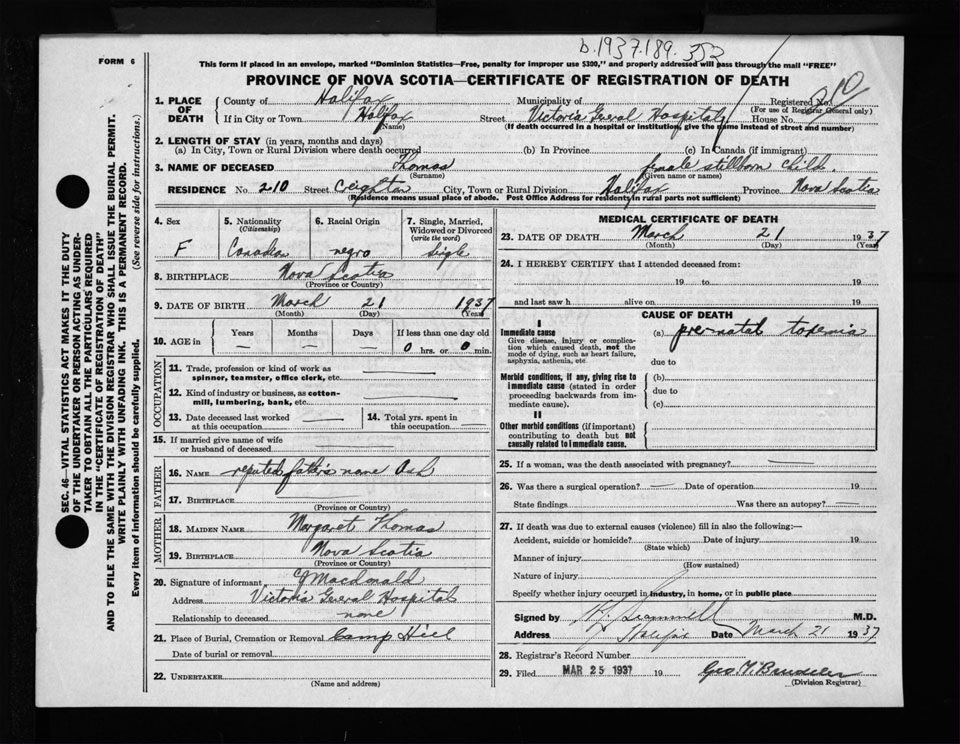 b.1937.189.352
FORM 6
This form if placed in an envelope, marked "Dominion Statistics—Free, penalty for improper use $300," and properly addressed will pass through the mail "FREE"
PROVINCE OF NOVA SCOTIA—CERTIFICATE OF REGISTRATION OF DEATH
1. PLACE OF DEATH
County of Halifax Municipality of Registered No.
(For use of Registrar General only)
If in City or Town Halifax Street Victoria General Hospital House No.
(Name) (If death occurred in a hospital or institution, give the name instead of street and number)
2. LENGTH OF STAY (in years, months and days)
(a) In City, Town or Rural Division where death occurred (b) In Province (c) In Canada (if immigrant)
3. NAME OF DECEASED Thomas female stillborn child.
(Surname) (Given name or names)
RESIDENCE No. 210 Street Creighton City, Town or Rural Division Halifax Province Nova Scotia
(Residence means usual place of abode. Post Office Address for residents in rural parts not sufficient)
4. Sex
F
5. Nationality
(Citizenship)
Canadian
6. Racial Origin
negro
7. Single, Married, Widowed or Divorced
(write the word)
Single
8. BIRTHPLACE Nova Scotia
(Province or Country)
9. DATE OF BIRTH March 21 1937
(Month) (Day) (Year)
10. AGE in
Years Months Days If less than one day old
— — — 0 hrs. or 0 min.
OCCUPATION
11. Trade, profession or kind of work as spinner, teamster, office clerk, etc.
12. Kind of industry or business, as cotton-mill, lumbering, bank, etc.
13. Date deceased last worked at this occupation —
14. Total yrs. spent in this occupation —
15. If married give name of wife or husband of deceased
FATHER
16. NAME reputed fathers name Ash
17. BIRTHPLACE
(Province or Country)
MOTHER
18. MAIDEN NAME Margaret Thomas
19. BIRTHPLACE Nova Scotia
(Province or Country)
20. Signature of informant Macdonald
Address Victoria General Hospital
Relationship to deceased none
21. Place of Burial, Cremation or Removal Camp Hill
Date of burial or removal
22. UNDERTAKER
(Name and address)
MEDICAL CERTIFICATE OF DEATH
23. DATE OF DEATH March 21 1937
(Month) (Day) (Year)
24. I HEREBY CERTIFY that I attended deceased from:
19 to 19
and last saw h alive on 19
CAUSE OF DEATH
I
Immediate cause
Give disease, injury or complication which caused death, not the mode of dying, such as heart failure, asphyxia, asthenia, etc.
(a) pre-natal toxemia
due to
Morbid conditions, if any, giving rise to immediate cause (stated in order proceeding backwards from immediate cause).
(b)
due to
(c)
II
Other morbid conditions (if important) contributing to death but not causally related to immediate cause.
25. If a woman, was the death associated with pregnancy?
26. Was there a surgical operation? — Date of operation 19
State findings Was there an autopsy? —
27. If death was due to external causes (violence) fill in also the following:—
Accident, suicide or homicide? Date of injury 19
(State which)
Manner of injury
(How sustained)
Nature of injury
Specify whether injury occurred in Industry, in home, or in public place
Signed by M.D.
Address Halifax Date March 21 1937
28. Registrar's Record Number
29. Filed MAR 25 1937 19
(Division Registrar)
SEC. 46—VITAL STATISTICS ACT MAKES IT THE DUTY
OF THE UNDERTAKER OR PERSON ACTING AS UNDER-
TAKER TO OBTAIN ALL THE PARTICULARS REQUIRED
IN THE "CERTIFICATE OF REGISTRATION OF DEATH"
AND TO FILE THE SAME WITH THE DIVISION REGISTRAR WHO SHALL ISSUE THE BURIAL PERMIT.
WRITE PLAINLY WITH UNFADING INK. THIS IS A PERMANENT RECORD.
Every item of information should be carefully supplied. (See reverse side for instructions.)